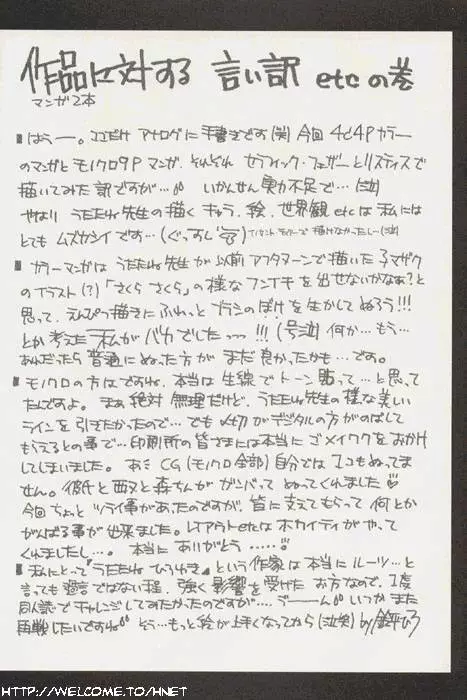 作品に対する 言い訳 etc の巻
マンガ2本
■はうー。ココだけ アナログに 手書きです(笑) 今回 4C4P カラー
のマンガと モノクロ9P マンガ、それぞれ セラフィック・フェザーと リスティスで
描いてみた 訳ですが…。 いかんせん 実力不足で…(泣)
やはり うたたね先生の描く キャラ、絵、世界観 etc は 私には
とても ムズカシイです…(ぐっすし) で描けなかったしー(泣)
■カラーマンガは うたたね先生が 以前 アフタヌーンで描いた
のイラスト(?)「さくら さくら」の様な フンイキ を出せないかなぁ?と
思って、えんぴつ描きに ふわっと ブラシのぼけを生かしてぬろう!!!
とか考えた 私が バカでしたっっ!!!(号泣) 何か…もう…
あれだったら 普通に ぬった方が まだ 良かったかも…です。
■モノクロの方はですね、本当は 生線で トーン 貼って…と思って
たんですよ。 まぁ 絶対 無理だけど、うたたね先生の様な美しい
ラインを引きたかったので… でも 〆切がデジタルの方がのばして
もらえるとの事で…印刷所の皆さまには本当に ゴメイワクを おかけ
してしまいました。 あぅ CG(モノクロ全部) 自分では 1コもぬってま
せん。彼氏と 西又と 森ちんが ガンバって ぬってくれました♡
今回 ちょっと ツライ事があったのですが、皆に 支えてもらって 何とか
がんばる事が出来ました。レイアウトetcは ホカイティが やって
くれましたし…。 本当に ありがとう……!
■私にとって『うたたね ひろゆき』という作家は 本当に ルーツ…と
言っても 過言ではない程、強く 影響を 受けた お方なので、1度
同人誌で チャレンジしてみたかったのですが…。うーーん いつか また
再戦したいですね。 どぅ…もっと絵が上手くなってから(泣笑) by
HTTP://WELCOME.TO/HNET